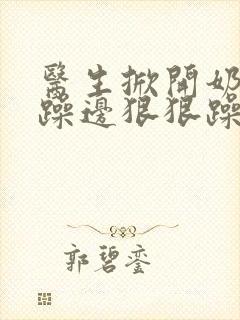 醫生掀開奶
躁邊狠狠躁
郭碧銮